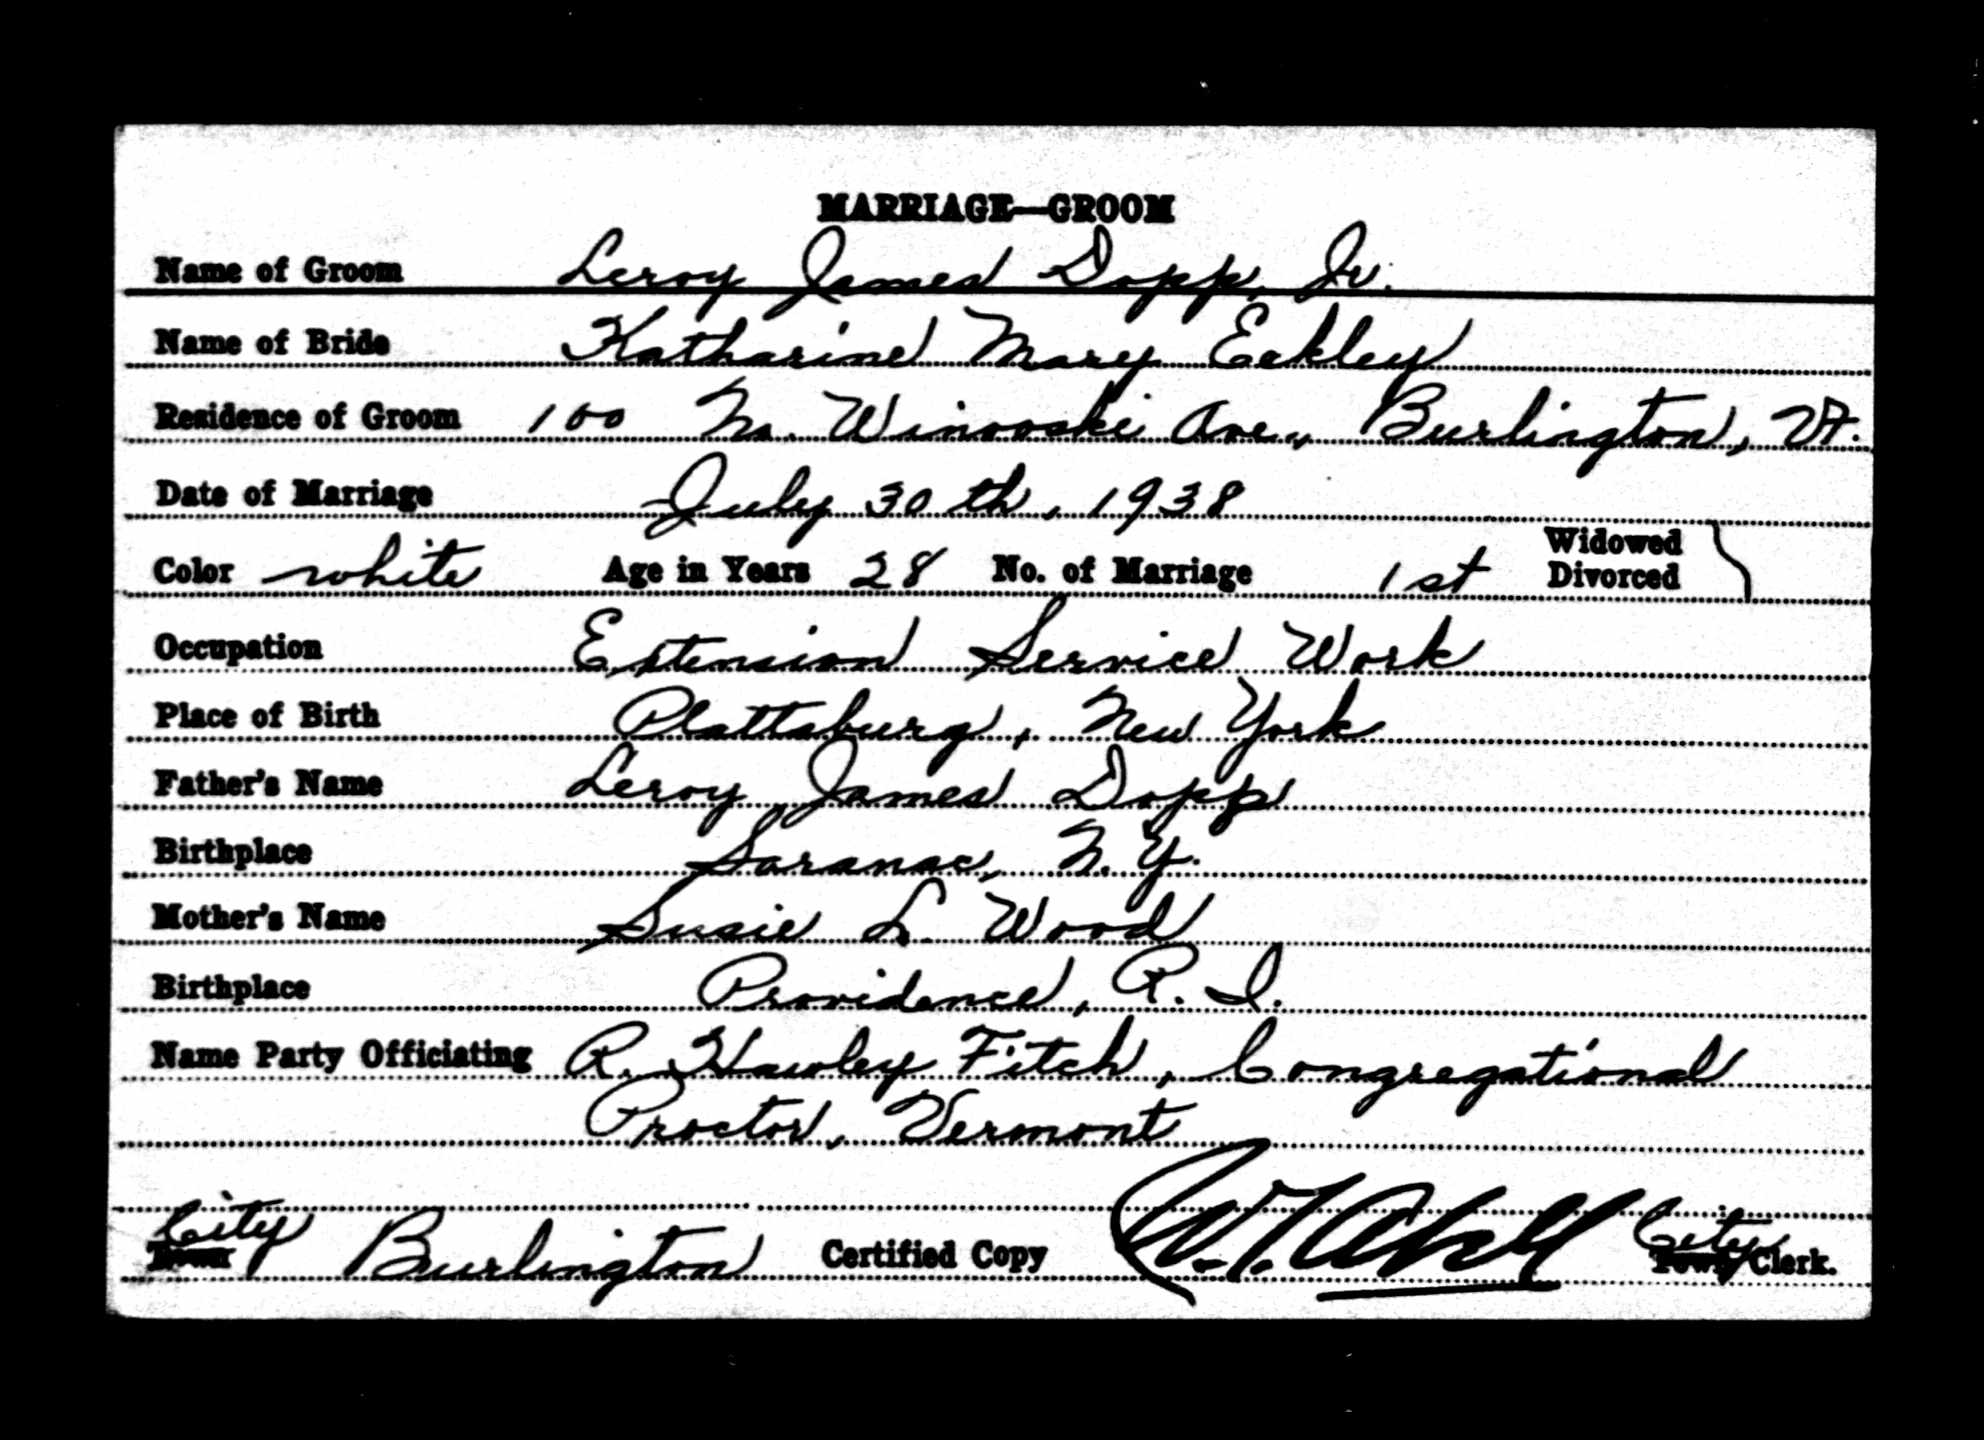 MARRIAGE—GROOM
Name of Groom Leroy James Dopp, Jr.
Name of Bride Katharine Mary Eckley
Residence of Groom 100 No. Winooski Ave., Burlington, Vt.
Date of Marriage July 30th, 1938
Color white Age in Years 28 No. of Marriage 1st Widowed Divorced
Occupation Extension Service Work
Place of Birth Plattsburg, New York
Father's Name Leroy James Dopp
Birthplace Saranac, N.Y.
Mother's Name Susie L. Wood
Birthplace Providence, R.I.
Name Party Officiating R. Hawley Fitch, Congregational
Proctor, Vermont
City Town Burlington Certified Copy City Town Clerk.